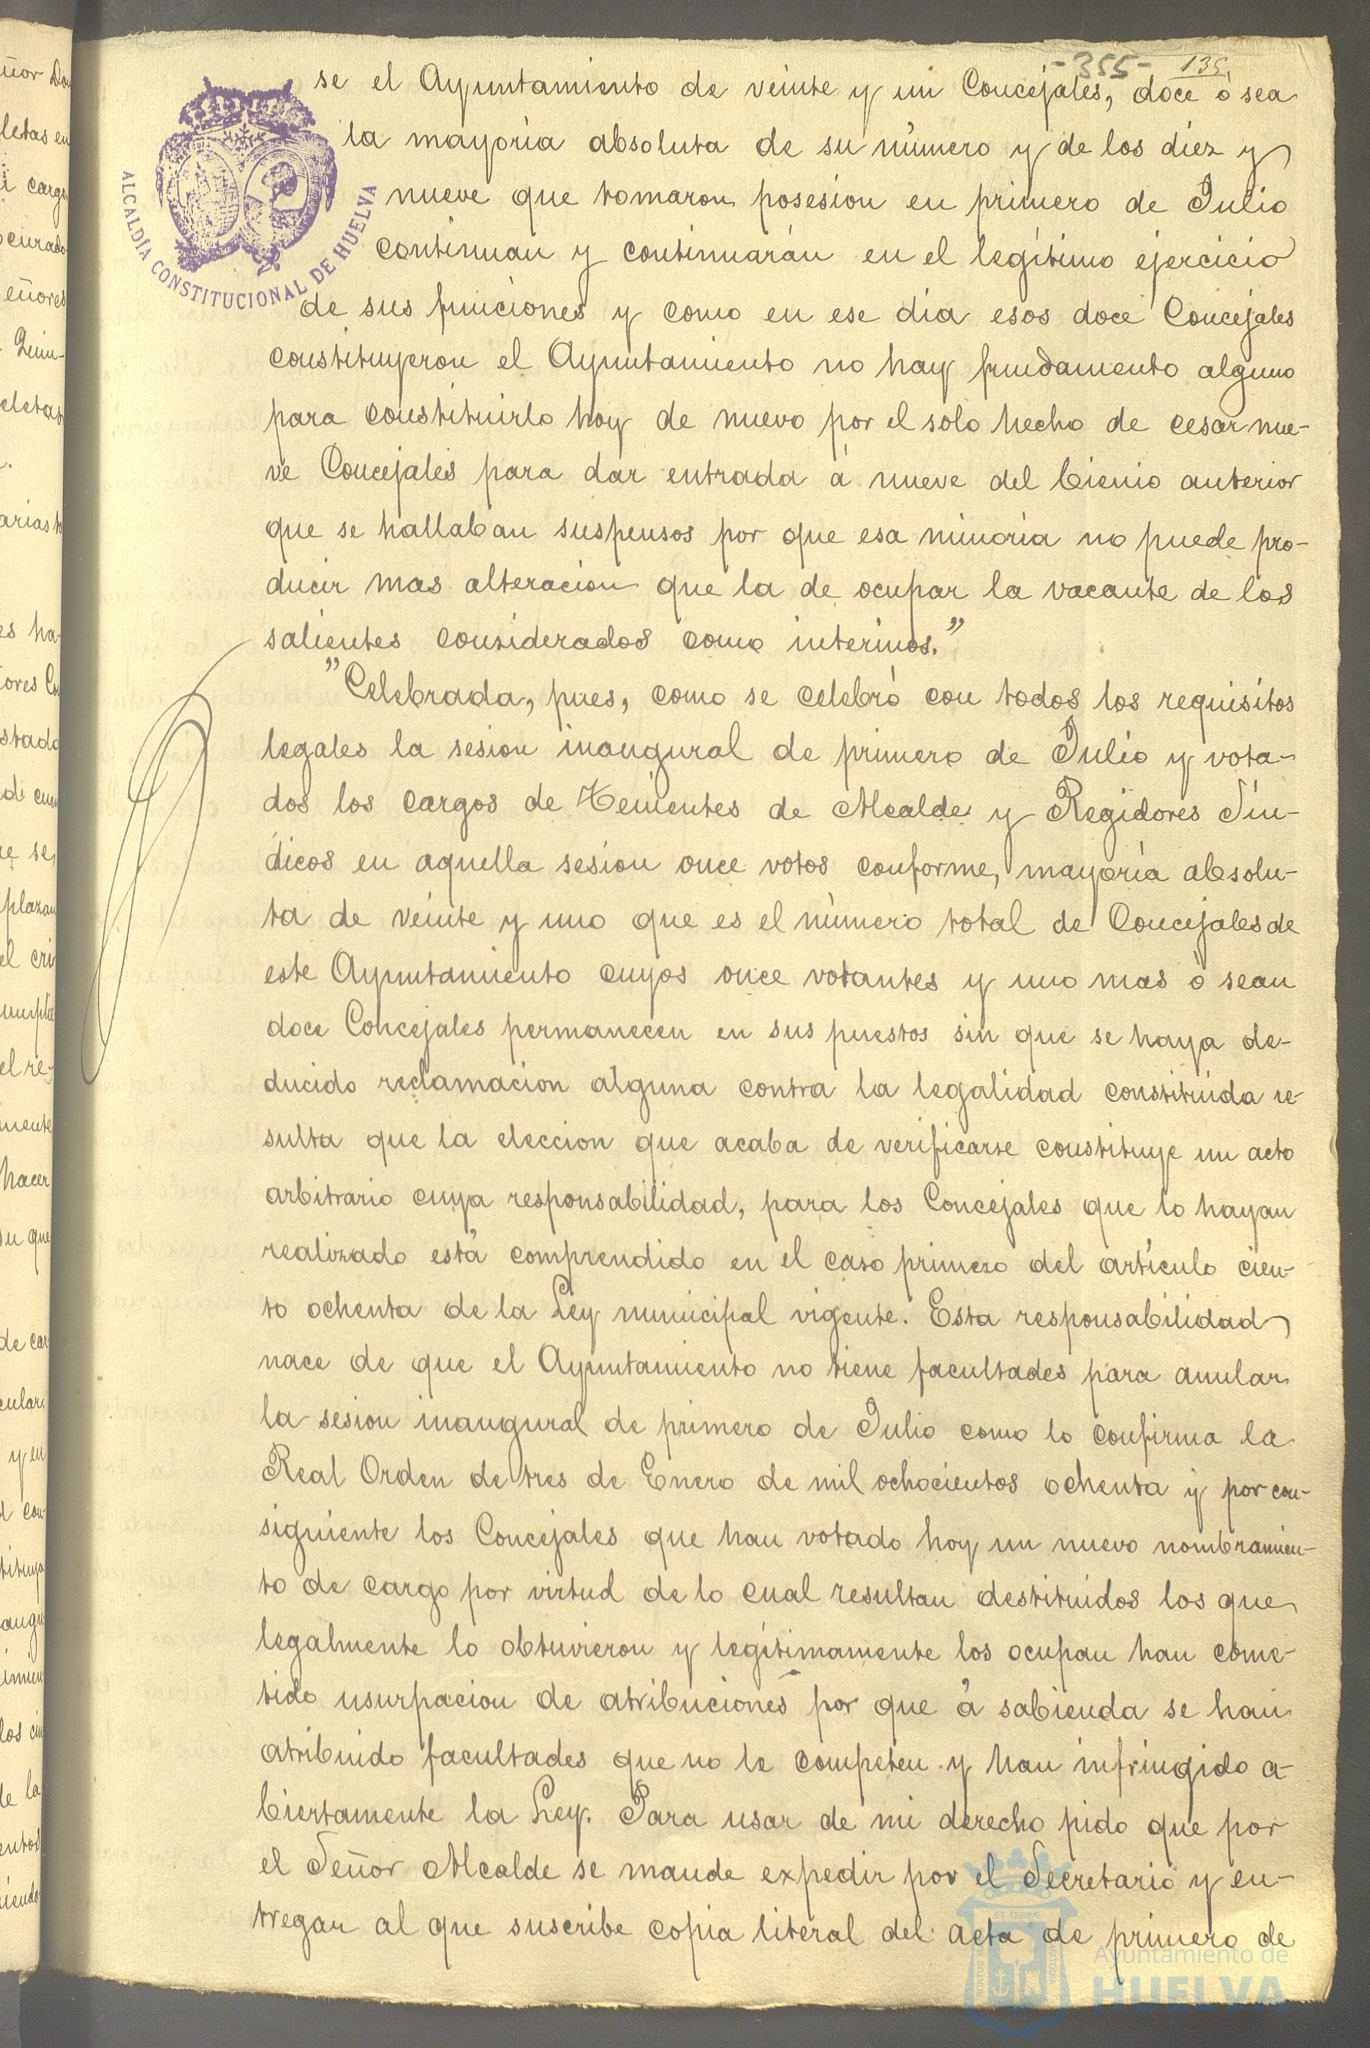 -355- 135
se el Ayuntamiento de veinte y un Concejales, doce ó sea
la mayoría absoluta de su número y de los diez y
nueve que tomaron posesion en primero de Julio
continuan y continuarán en el legítimo ejercicio
de sus funciones y como en ese día esos doce Concejales
constituyeron el Ayuntamiento no hay fundamento alguno
para constituirlo hoy de nuevo por el solo hecho de cesar nue-
ve Concejales para dar entrada á nueve del bienio anterior
que se hallaban suspensos por que esa minoría no puede pro-
ducir mas alteracion que la de ocupar la vacante de los
salientes considerados como interinos."
"Celebrada, pues, como se celebró con todos los requisitos
legales la sesion inaugural de primero de Julio y vota-
dos los cargos de Tenientes de Alcalde y Regidores Sín-
dicos en aquella sesion once votos conforme, mayoría absolu-
ta de veinte y uno que es el número total de Concejales de
este Ayuntamiento cuyos once votantes y uno mas ó sean
doce Concejales permanecen en sus puestos sin que se haya de-
ducido reclamacion alguna contra la legalidad constituida re-
sulta que la eleccion que acaba de verificarse constituye un acto
arbitrario cuya responsabilidad, para los Concejales que lo hayan
realizado está comprendido en el caso primero del artículo cien-
to ochenta de la Ley municipal vigente. Esta responsabilidad
nace de que el Ayuntamiento no tiene facultades para anular
la sesion inaugural de primero de Julio como lo confirma la
Real Orden de tres de Enero de mil ochocientos ochenta y por con-
siguiente los Concejales que han votado hoy un nuevo nombramien-
to de cargo por virtud de lo cual resultan destituidos los que
legalmente lo obtuvieron y legítimamente los ocupan han come-
tido usurpacion de atribuciones por que á sabienda se han
atribuido facultades que no le competen y han infringido a-
biertamente la Ley. Para usar de mi derecho pido que por
el Señor Alcalde se mande expedir por el Secretario y en-
tregar al que suscribe copia literal del acta de primero de
ALCALDÍA CONSTITUCIONAL DE HUELVA
Ayuntamiento de
HUELVA